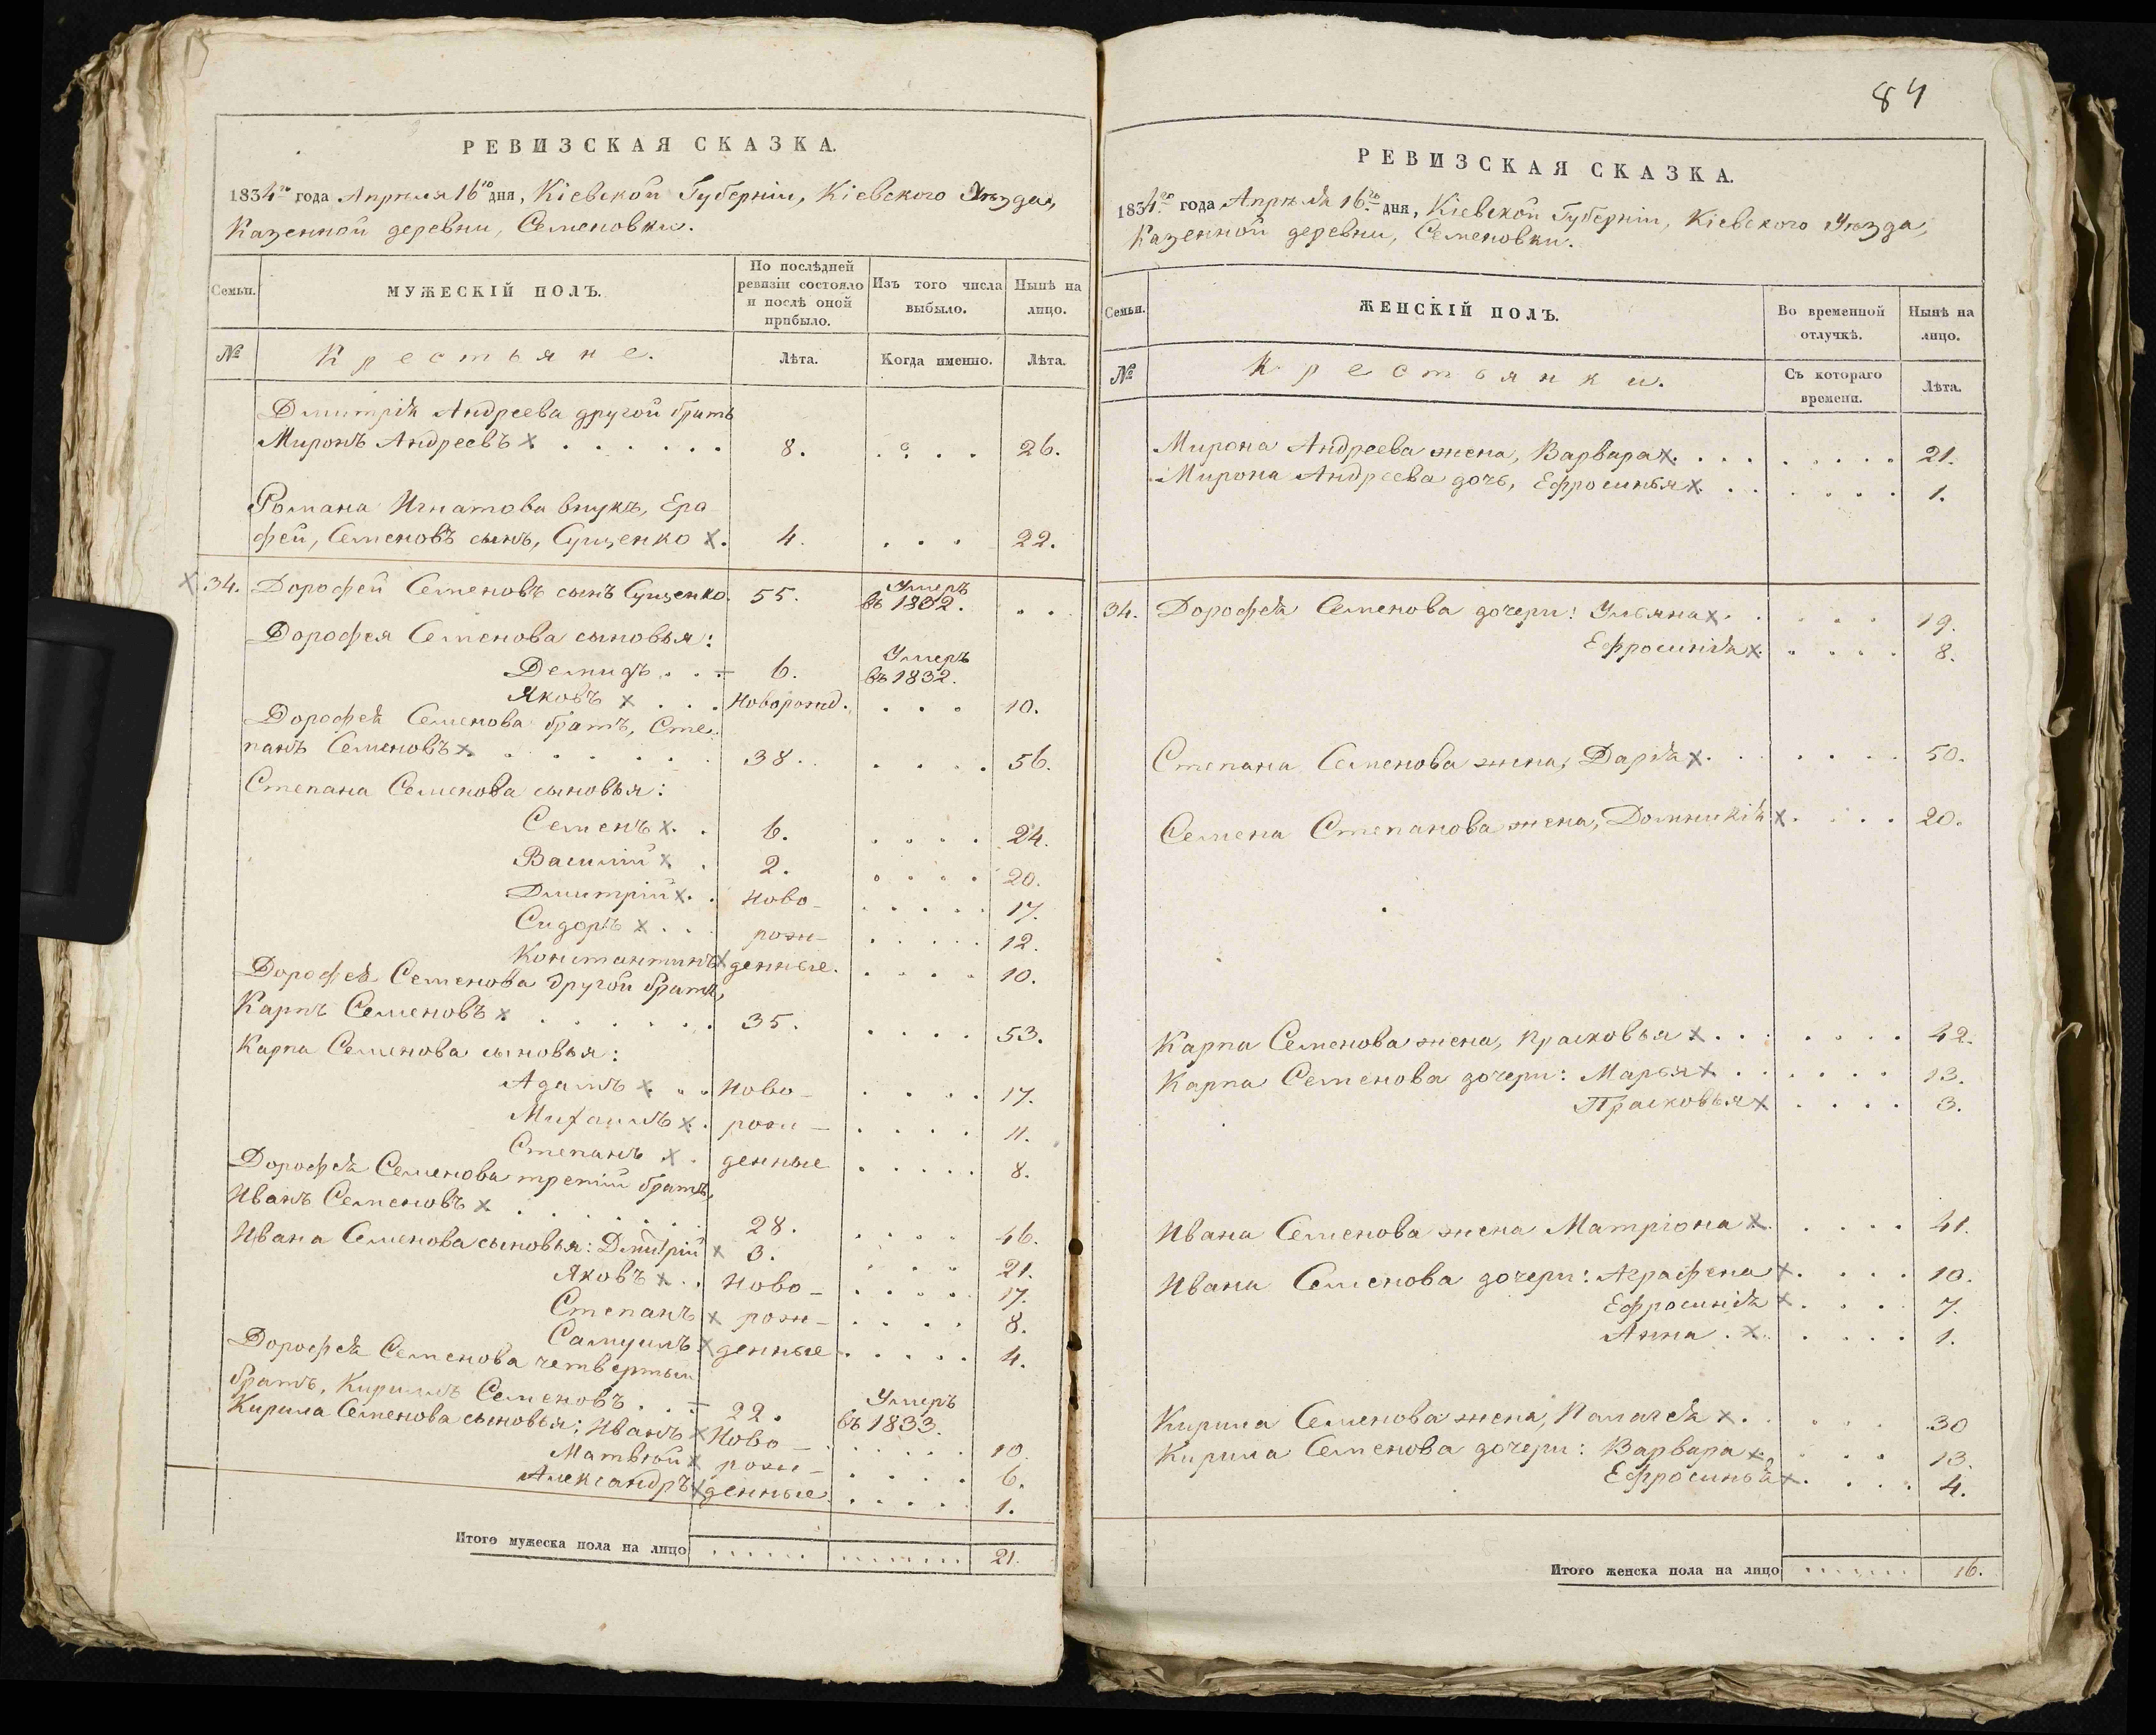 РЕВИЗСКАЯ СКАЗКА.
1834го года Апрѣля 16го дня, Кіевской Губерніи, Кіевского Уѣзда,
Казенной деревни, Семеновки.
Семьи.
МУЖЕСКІЙ ПОЛЪ.
По послѣдней ревизіи состояло и послѣ оной прибыло.
Изъ того числа выбыло.
Нынѣ на лицо.
№
Крестьяне.
Лѣта.
Когда именно.
Лѣта.
Дмитрія Андреева другой братъ
Миронъ Андреевъ x . . . . . . 8. . . . . 26.
Романа Игнатова внукъ, Ера-
фей, Семеновъ сынъ, Сущенко x. 4. . . . 22.
x 34. Дорофей Семеновъ сынъ Сущенко. 55. Умеръ въ 1832. . .
Дорофея Семенова сыновья:
Демидъ . . + 6. Умеръ въ 1832.
Яковъ x . . . Новорожд. . . . 10.
Дорофея Семенова братъ, Сте-
панъ Семеновъ x . . . . . . 38. . . . . 56.
Степана Семенова сыновья:
Семенъ x . . 6. . . . . 24.
Василій x . 2. . . . . 20.
Дмитрій x . . Ново- . . . . . 17.
Сидоръ x . . рож- . . . . . 12.
Константинъ x денные. . . . . 10.
Дорофея Семенова другой братъ,
Карпъ Семеновъ x . . . . . . 35. . . . . 53.
Карпа Семенова сыновья:
Адамъ x . . Ново- . . . . 17.
Михаилъ x . рож- . . . . 11.
Степанъ x . денные . . . . . 8.
Дорофея Семенова третій братъ,
Иванъ Семеновъ x . . . . . . 28. . . . . 46.
Ивана Семенова сыновья: Дмитрій x 3. . . . 21.
Яковъ x . . Ново- . . . . 17.
Степанъ x рож- . . . . 8.
Самуилъ x денные . . . . . 4.
Дорофея Семенова четвертый
братъ, Кирилъ Семеновъ . . + 22. Умеръ въ 1833.
Кирила Семенова сыновья: Иванъ x Ново- . . . . . 10.
Матвѣй x рож- . . . . 6.
Александръ x денные. . . . . . 1.
Итого мужеска пола на лицо . . . . . . . . . . . . 21.
84
РЕВИЗСКАЯ СКАЗКА.
1834го года Апрѣля 16го дня, Кіевской Губерніи, Кіевского Уѣзда,
Казенной деревни, Семеновки.
Семьи.
ЖЕНСКІЙ ПОЛЪ.
Во временной отлучкѣ.
Нынѣ на лицо.
№
Крестьянки.
Съ котораго времени.
Лѣта.
Мирона Андреева жена, Варвара x. . . . . . . . 21.
Мирона Андреева дочь, Ефросинья x. . . . . . . 1.
34. Дорофея Семенова дочери: Ульяна x. . . . . 19.
Ефросинія x. . . . . 8.
Степана Семенова жена, Дарія x. . . . . . 50.
Семена Степанова жена, Домникія x. . . . 20.
Карпа Семенова жена, Прасковья x . . . . . . . 42.
Карпа Семенова дочери: Марья x . . . . . . . 13.
Прасковья x . . . . 3.
Ивана Семенова жена Матріона x. . . . . 41.
Ивана Семенова дочери: Аграфена x. . . . 10.
Ефросинія x . . . . 7.
Анна . x . . . . . 1.
Кирила Семенова жена, Палагея x . . . . . 30
Кирила Семенова дочери: Варвара x . . . . 13.
Ефросинья x . . . . 4.
Итого женска пола на лицо . . . . . . . 16.